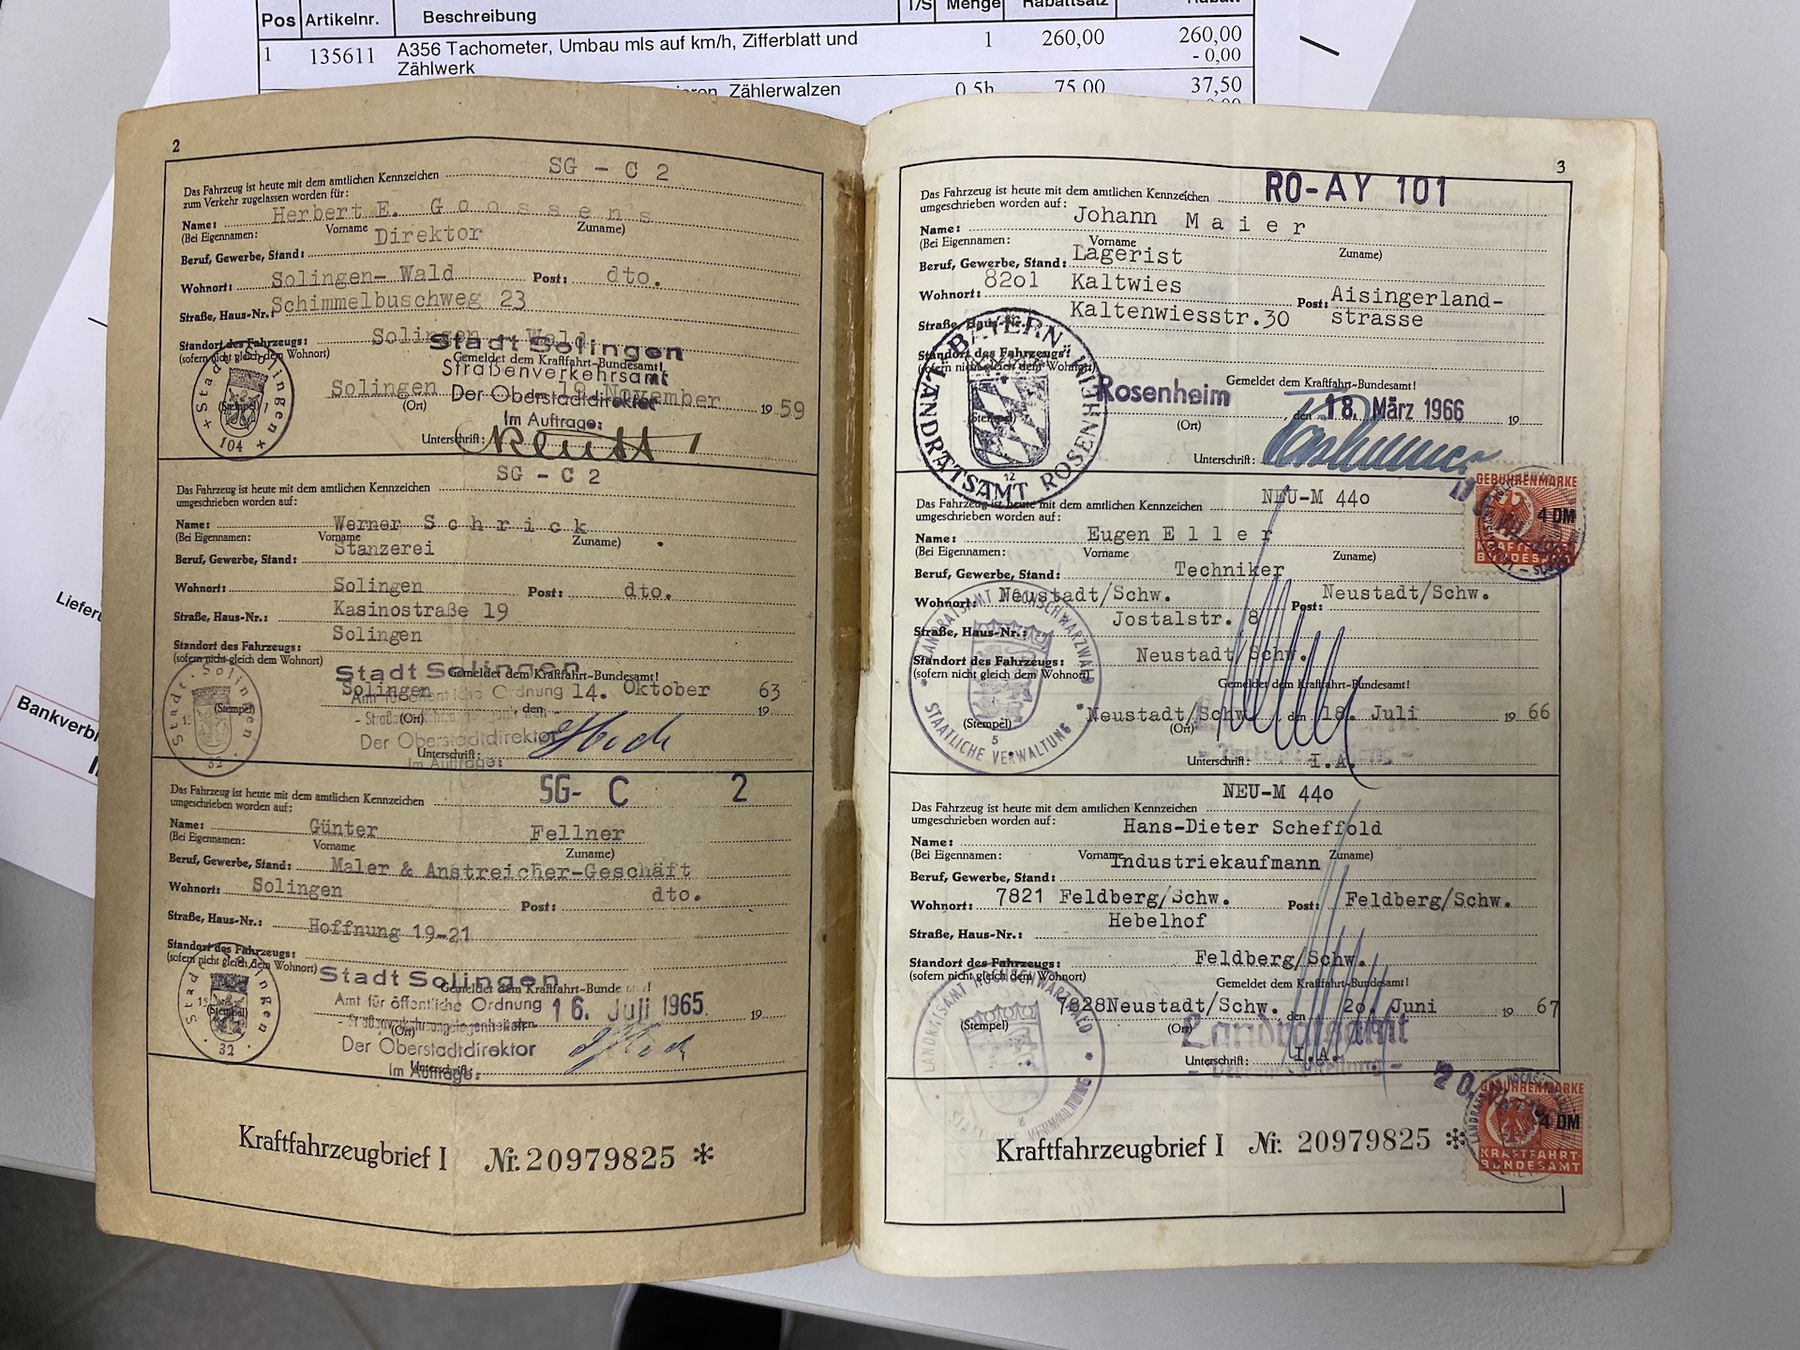 Pos Artikelnr. Beschreibung T/S Menge Rabattsatz Rabatt
1 135611 A356 Tachometer, Umbau mls auf km/h, Zifferblatt und 1 260,00 260,00
Zählwerk - 0,00
Zählerwalzen 0,5h 75,00 37,50
Bankverbi
2
Das Fahrzeug ist heute mit dem amtlichen Kennzeichen SG - C 2
zum Verkehr zugelassen worden für:
Name: Herbert E. Goossens
(Bei Eigennamen: Vorname Zuname)
Beruf, Gewerbe, Stand: Direktor
Wohnort: Solingen- Wald Post: dto.
Straße, Haus-Nr.: Schimmelbuschweg 23
Standort des Fahrzeugs: Solingen - Wald
(sofern nicht gleich dem Wohnort)
Stadt Solingen
Gemeldet dem Kraftfahrt-Bundesamt!
Straßenverkehrsamt
Solingen 19. November 19 59
(Ort) Der Oberstadtdirektor
(Stempel)
Stadt Solingen 104
Im Auftrage:
Unterschrift:
SG - C 2
Das Fahrzeug ist heute mit dem amtlichen Kennzeichen
umgeschrieben worden auf:
Name: Werner Schrick
(Bei Eigennamen: Vorname Zuname)
Beruf, Gewerbe, Stand: Stanzerei
Wohnort: Solingen Post: dto.
Straße, Haus-Nr.: Kasinostraße 19
Standort des Fahrzeugs: Solingen
(sofern nicht gleich dem Wohnort)
Stadt Solingen
Gemeldet dem Kraftfahrt-Bundesamt!
Solingen den 14. Oktober 19 63
Amt für öffentliche Ordnung
(Stempel) (Ort)
Stadt Solingen 32
Der Oberstadtdirektor
Unterschrift:
Im Auftrage:
Das Fahrzeug ist heute mit dem amtlichen Kennzeichen SG- C 2
umgeschrieben worden auf:
Name: Günter Fellner
(Bei Eigennamen: Vorname Zuname)
Beruf, Gewerbe, Stand: Maler & Anstreicher-Geschäft
Wohnort: Solingen Post: dto.
Straße, Haus-Nr.: Hoffnung 19-21
Standort des Fahrzeugs:
(sofern nicht gleich dem Wohnort)
Stadt Solingen
Gemeldet dem Kraftfahrt-Bunde
Amt für öffentliche Ordnung 16. Juli 1965 19
- Straßenverkehrsangelegenheiten -
(Stempel) (Ort)
Der Oberstadtdirektor
Unterschrift:
Im Auftrage:
32
Kraftfahrzeugbrief I Nr. 20979825 *
3
Das Fahrzeug ist heute mit dem amtlichen Kennzeichen RO-AY 101
umgeschrieben worden auf:
Name: Johann Maier
(Bei Eigennamen: Vorname Zuname)
Beruf, Gewerbe, Stand: Lagerist
Wohnort: 8201 Kaltwies Post: Aisingerland-
Straße, Haus-Nr.: Kaltenwiesstr.30 strasse
Standort des Fahrzeugs:
(sofern nicht gleich dem Wohnort)
BAYERN
LANDRATSAMT ROSENHEIM
12
Gemeldet dem Kraftfahrt-Bundesamt!
Rosenheim den 18. März 1966 19
(Stempel) (Ort)
Unterschrift:
NEU-M 440
Das Fahrzeug ist heute mit dem amtlichen Kennzeichen
umgeschrieben worden auf:
GEBÜHRENMARKE
4 DM
KRAFTFAHRT-
BUNDESAMT
Name: Eugen Eller
(Bei Eigennamen: Vorname Zuname)
Beruf, Gewerbe, Stand: Techniker
Wohnort: Neustadt/Schw. Post: Neustadt/Schw.
Straße, Haus-Nr.: Jostalstr. 8
Standort des Fahrzeugs: Neustadt Schw.
(sofern nicht gleich dem Wohnort)
Gemeldet dem Kraftfahrt-Bundesamt!
Neustadt/Schw. den 18. Juli 19 66
(Stempel) (Ort)
LANDRATSAMT HOCHSCHWARZWALD
STAATLICHE VERWALTUNG
5
Unterschrift: I.A.
NEU-M 440
Das Fahrzeug ist heute mit dem amtlichen Kennzeichen
umgeschrieben worden auf:
Name: Hans-Dieter Scheffold
(Bei Eigennamen: Vorname Zuname)
Beruf, Gewerbe, Stand: Industriekaufmann
Wohnort: 7821 Feldberg/Schw. Post: Feldberg/Schw.
Straße, Haus-Nr.: Hebelhof
Standort des Fahrzeugs: Feldberg/Schw.
(sofern nicht gleich dem Wohnort)
Gemeldet dem Kraftfahrt-Bundesamt!
7828Neustadt/Schw. den 20. Juni 19 67
(Stempel) (Ort)
LANDRATSAMT HOCHSCHWARZWALD
Landratsamt
Unterschrift: I.A.
20.
GEBÜHRENMARKE
4 DM
KRAFTFAHRT-
BUNDESAMT
Kraftfahrzeugbrief I Nr. 20979825 *